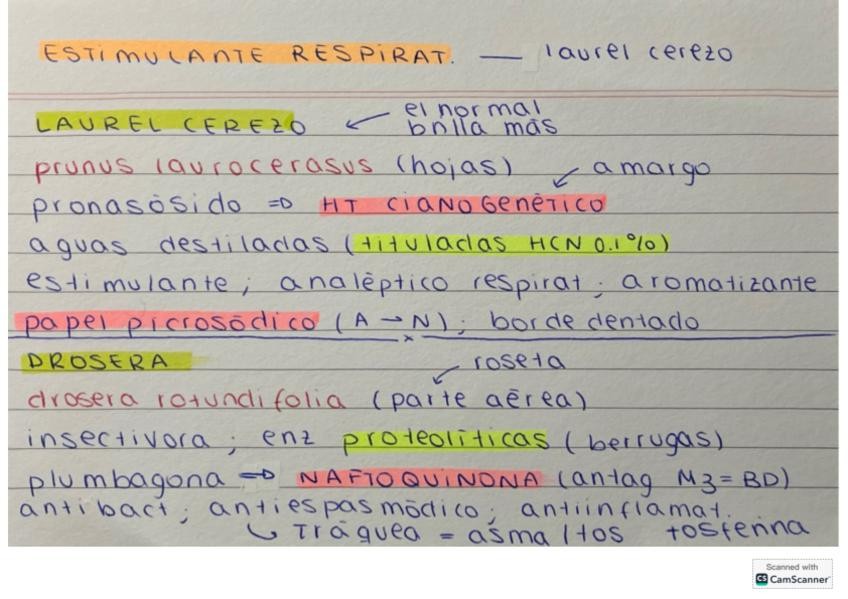 ESTIMULANTE RESPIRAT. — laurel cerezo
LAUREL CEREZO ← el normal brilla más
prunus laurocerasus (hojas) ↙ amargo
pronasósido => HT CIANOGENÉTICO
aguas destiladas (tituladas HCN 0.1%)
estimulante; analéptico respirat; aromatizante
papel picrosódico (A → N); borde dentado
DROSERA ↙ roseta
drosera rotundifolia (parte aérea)
insectivora; enz proteolíticas (berrugas)
plumbagona => NAFTOQUINONA (antag M3 = BD)
antibact; antiespasmódico; antiinflamat.
↳ Tráquea = asma / tos tosferina
Scanned with
CS CamScanner